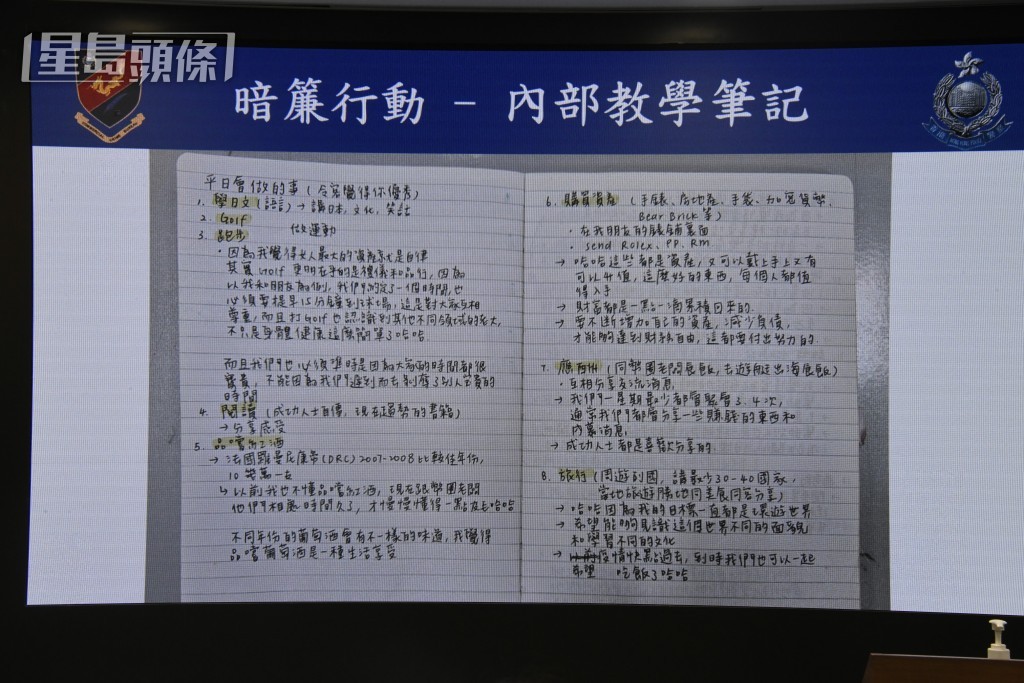 星島頭條
暗簾行動 - 內部教學筆記
平日會做的事 (令客覺得你優秀)
1. 學日文(語言) → 講日本, 文化, 笑話
2. Golf
做運動
3. 跑步
· 因為我覺得女人最大的資產就是自律
其實 Golf 更明在爭的是禮儀和品行, 因為
以我和朋友為例, 我們約定了一個時間, 也
必須要提早15分鐘到球場, 這是對大家互相
尊重, 而且打Golf也認識到其他不同領域的名人,
不只是身體健康這麼簡單了哈哈.
而且我們也必須準時是因為大家的時間都很
寶貴, 不能因為我們遲到而去剝奪了別人寶貴的
時間
4. 閱讀 (成功人士自傳, 現在運勢的書籍)
→ 分享感受
5. 品嚐紅酒
→ 法國羅曼尼康帝(DRC) 2007-2008比較佳年份,
10幾萬一支
↳ 以前我也不懂品嚐紅酒, 現在跟幣圈老闆
他們相處時間久了, 才慢慢懂得一點皮毛哈哈
不同年份的葡萄酒會有不一樣的味道, 我覺得
品嚐葡萄酒是一種生活享受
6. 購買資產 (手錶、房地產、手袋、加密貨幣,
Bear Brick 等)
· 在我朋友的錶舖裏面
· send Rolex, PP, RM
→ 哈哈這些都是資產, 又可以戴上手上又有
可以升值, 這麼好的東西, 每個人都值
得入手
→ 財富都是一點一滴累積回來的.
→ 要不斷增加自己的資產, 減少負債,
才能夠達到財務自由, 這都要付出努力的
7. 應酬 (同幣圈老闆食飯, 去遊艇出海食飯)
· 互相分享交流消息,
→ 我們一星期最少都會聚會 3.4次,
通常我們都會分享一些賺錢的東西和
內幕消息,
→ 成功人士都是喜歡分享的.
8. 旅行 (周遊列國, 講最少30-40國家,
當地旅遊勝地同美食同客分享)
→ 哈哈因為我的目標一直都是環遊世界
→ 希望能夠見識這個世界不同的面貌
和學習不同的文化
→ 疫情快點過去, 到時我們也可以一起
希望 吃飯了哈哈